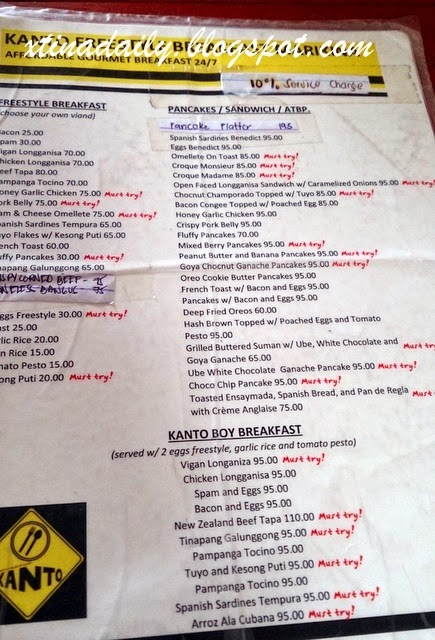 KANTO FREESTYLE BREAKFAST
xtinadaily.blogspot.com
AFFORDABLE GOURMET BREAKFAST 24/7
10% Service Charge
FREESTYLE BREAKFAST
choose your own viand)
Bacon 25.00
Spam 30.00
Vigan Longganisa 70.00
Chicken Longganisa 70.00
Beef Tapa 80.00
Pampanga Tocino 70.00
Honey Garlic Chicken 75.00 Must try!
Pork Belly 75.00 Must try!
Ham & Cheese Omellete 75.00 Must try!
Spanish Sardines Tempura 65.00
Tuyo Flakes w/ Kesong Puti 65.00
French Toast 60.00
Fluffy Pancakes 30.00 Must try!
Tinapang Galunggong 65.00
CRISPY CORNED BEEF - 75
BONELESS BANGUS 75
Eggs Freestyle 30.00 Must try!
Toast 25.00
Garlic Rice 20.00
Rice 15.00
Tomato Pesto 15.00
Kesong Puti 20.00 Must try!
PANCAKES / SANDWICH / ATBP.
Pancake Platter 195
Spanish Sardines Benedict 95.00
Eggs Benedict 95.00
Omellete On Toast 85.00 Must try!
Croque Monsieur 85.00 Must try!
Croque Madame 85.00 Must try!
Open Faced Longganisa Sandwich w/ Caramelized Onions 95.00 Must try!
Chocnut Champorado Topped w/ Tuyo 85.00 Must try!
Bacon Congee Topped w/ Poached Egg 85.00
Honey Garlic Chicken 95.00
Crispy Pork Belly 95.00
Fluffy Pancakes 70.00
Mixed Berry Pancakes 95.00 Must try!
Peanut Butter and Banana Pancakes 95.00 Must try!
Goya Chocnut Ganache Pancakes 95.00 Must try!
Oreo Cookie Butter Pancakes 95.00
French Toast w/ Bacon and Eggs 95.00
Pancakes w/ Bacon and Eggs 95.00
Deep Fried Oreos 60.00
Hash Brown Topped w/ Poached Eggs and Tomato
Pesto 95.00
Grilled Buttered Suman w/ Ube, White Chocolate and Must try!
Goya Ganache 65.00
Ube White Chocolate Ganache Pancake 95.00 Must try!
Choco Chip Pancake 95.00 Must try!
Toasted Ensaymada, Spanish Bread, and Pan de Regla Must try!
with Crème Anglaise 75.00
KANTO BOY BREAKFAST
(served w/ 2 eggs freestyle, garlic rice and tomato pesto)
Vigan Longaniza 95.00 Must try!
Chicken Longganisa 95.00
Spam and Eggs 95.00
Bacon and Eggs 95.00
New Zealand Beef Tapa 110.00 Must try!
Tinapang Galunggong 95.00 Must try!
Pampanga Tocino 95.00
Tuyo and Kesong Puti 95.00 Must try!
Pampanga Tocino 95.00
Spanish Sardines Tempura 95.00 Must try!
Arroz Ala Cubana 95.00 Must try!
KANTO